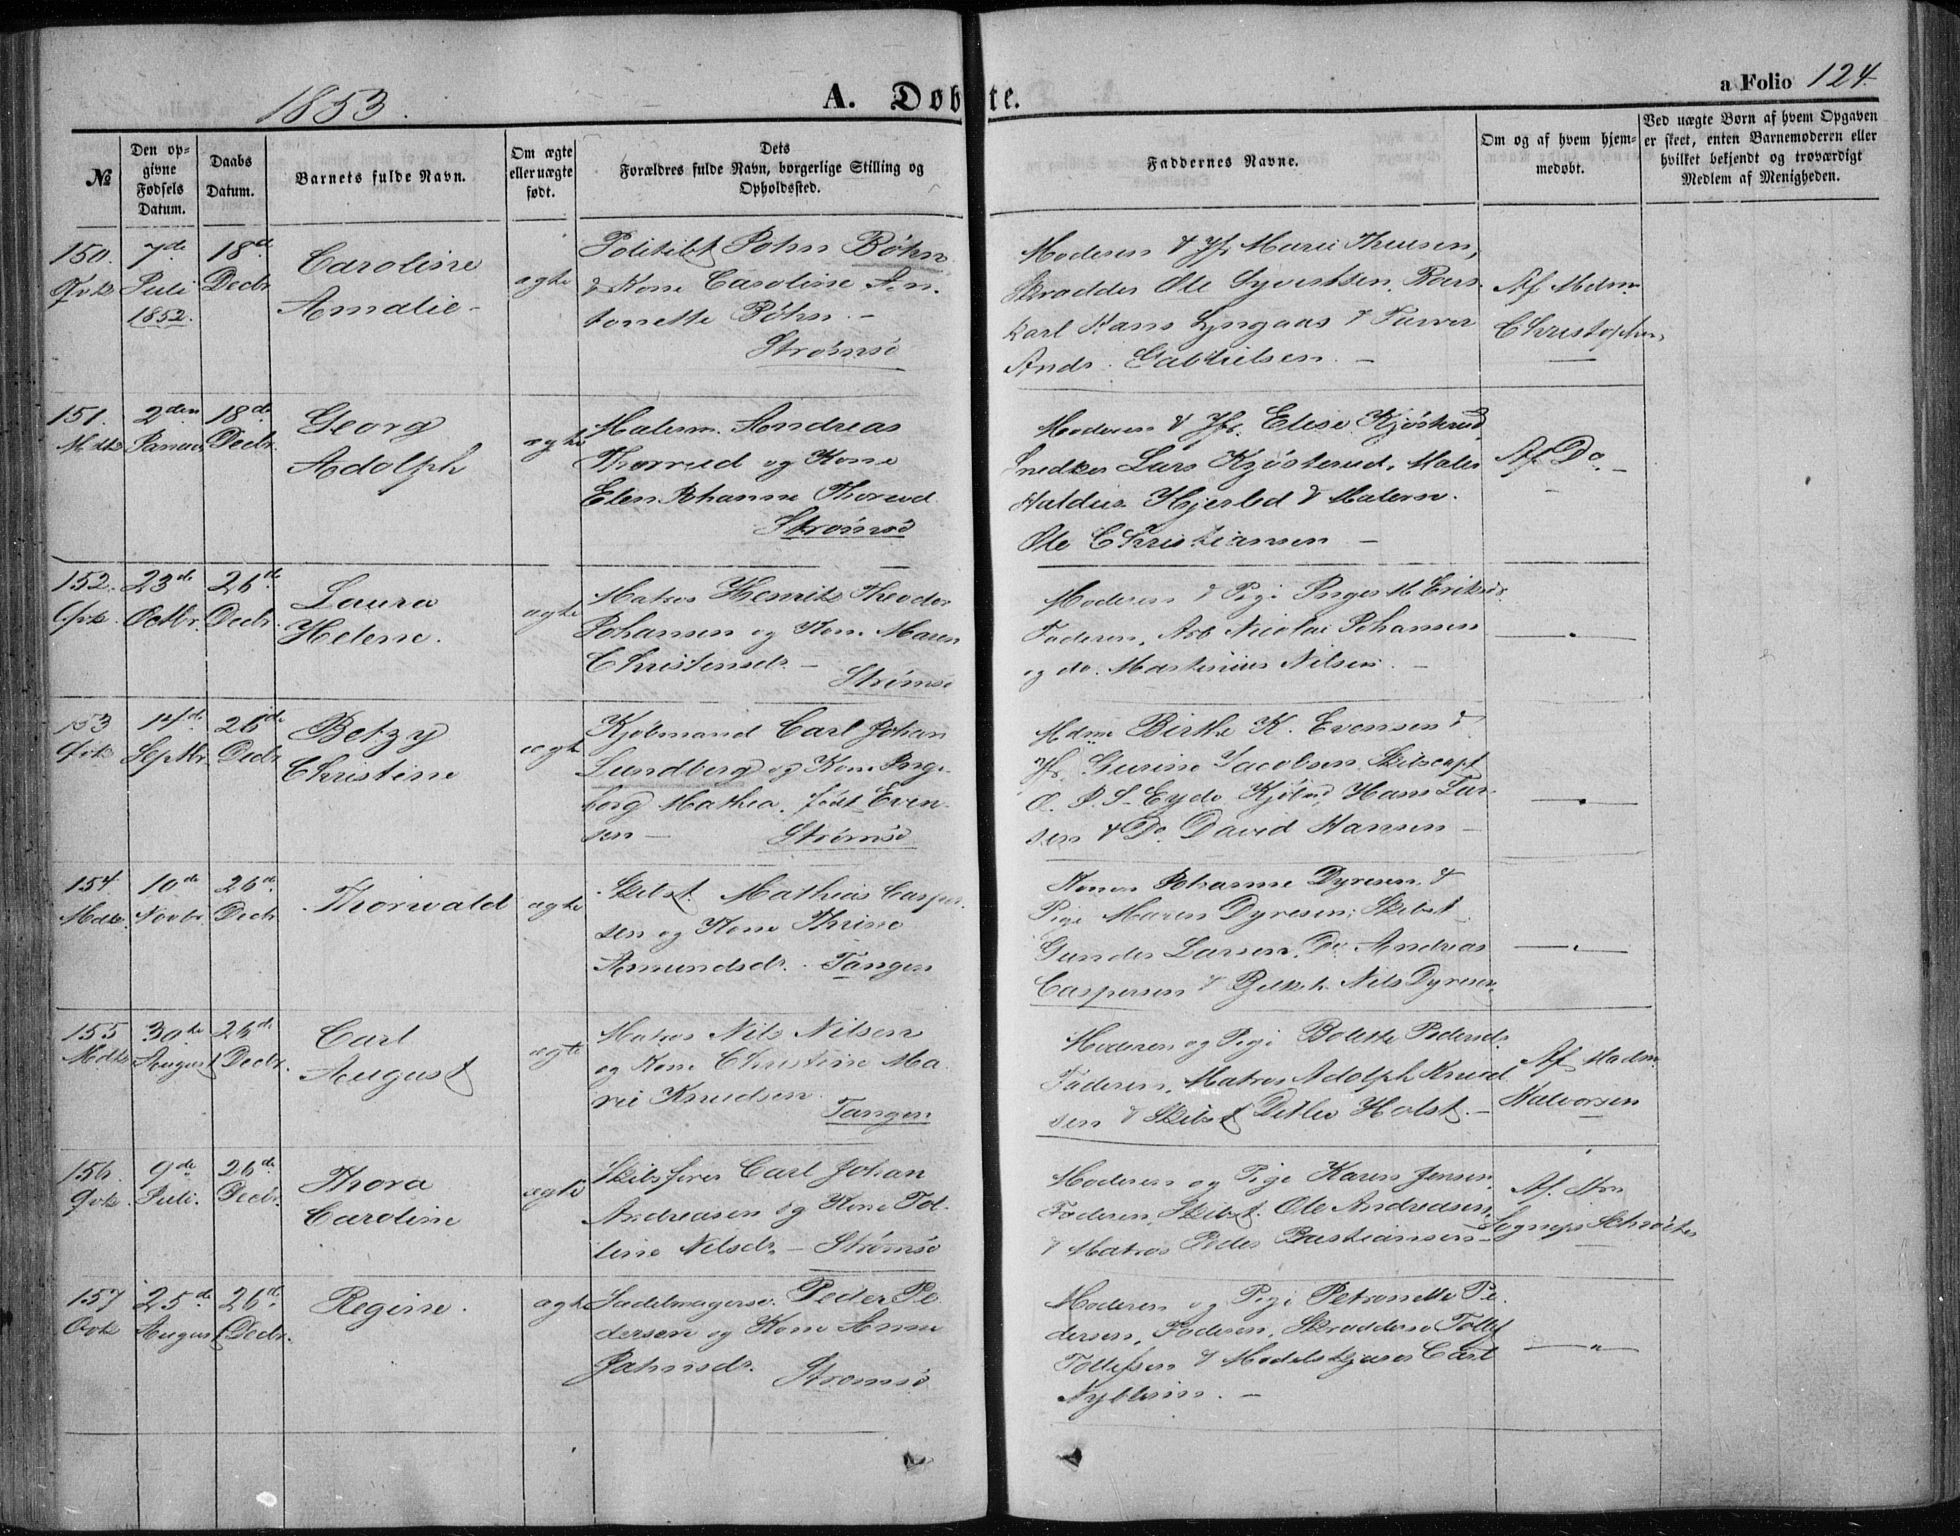 1853.
A. Døbte.
a Folio 124.
№
Den op-
givne
Fødsels
Datum.
Daabs
Datum.
Barnets fulde Navn.
Om ægte
eller uægte
født.
Dets
Forældres fulde Navn, borgerlige Stilling og
Opholdssted.
Faddernes Navne.
Om og af hvem hjem-
medøbt.
Ved uægte Børn af hvem Opgaven
er skeet, enten Barnemoderen eller
hvilket bekjendt og troværdigt
Medlem af Menigheden.
150.
Qvk
7de
Juli
1852.
18de
Decbr
Caroline
Amalie -
ægte
Politibt John Bøhn
& Kone Caroline An-
tonette Bøhn. -
Strømsø
Moderen & Jfr Marie Thuesen,
Skrædder Ole Syvertsen,
Karl Hans Lyngaas & Farver
Ands. Gabrielsen. -
Af Mdm
Christophersen
151.
Mdk
2den
Januar
18de
Decbr.
Georg
Adolph
ægte
Malerm. Andreas
Thorrud og Kone
Elen Johanne Thorrud
Strømsø
Moderen & Jfr. Elise Kjøsterud,
Snedker Lars Kjøsterud, Maler
Haldus Hjerled & Malerm.
Ole Christiansen -
Af Do. -
152.
Qvk.
23de
Octbr.
26de
Decbr.
Laura
Helene.
ægte
Matros Henrik Theodor
Johansen og Kone Maren
Christensdr. -
Strømsø
Moderen & Pige Inger M. Eriksdr.
Faderen, Arb Nicolai Johansen
og do. Martinius Nilsen. -
— " —
153
Qvk
14de
Septbr.
26de
Decbr
Betzy
Christine
ægte
Kjøbmand Carl Johan
Lundberg og Kone Inge-
borg Mathea, født Even-
sen -
Strømsø
Mdme Birthe K. Evensen &
Jfr. Gurine Jacobsen Skibscapt
O. P. S. Eyde Kjøbm. Hans Lar-
sen & Do. David Hansen -
— " —
154
Mdk.
10de
Novbr.
26de
Decbr
Thorvald
ægte
Skibst. Mathias Casper-
sen og Kone Thrine
Amundsdr. - Tangen
Konen Johanne Dyresen &
Pige Maren Dyresen; Skibst.
Gunder Larsen, Do. Andreas
Caspersen & Nils Dyresen
— " —
155
Mdk
30te
August
26de
Decbr.
Carl
August
ægte
Matros Nils Nilsen
og Kone Christine Ma-
rie Knudsen
Tangen
Moderen og Pige Bolette Pedersdr.
Faderen, Matros Adolph Knud-
sen & Skibst Detlev Holst. -
Af Madm.
Halvorsen
156.
Qvk.
9de
Juli.
26de
Decbr.
Thora
Caroline
ægte
Skibsfører Carl Johan
Andreasen og Kone Tol-
line Nilsdr. - Strømsø
Moderen og Pige Karen Jensen,
Faderen, Skibst. Ole Andreasen,
& Matros Peder Bastiansen -
Af Hrr
Sognepr Schrøter
157
Qvk
25de
August
26de
Decbr.
Regine.
ægte
Sadelmagersv. Peder Pe-
dersen og Kone Anne
Jahnsdr. Strømsø
Moderen og Pige Petronelle Pe-
dersen, Faderen, Skræddersv Tollef
Tollefsen & Modelskjærer Carl
Nyblin. -
— " —